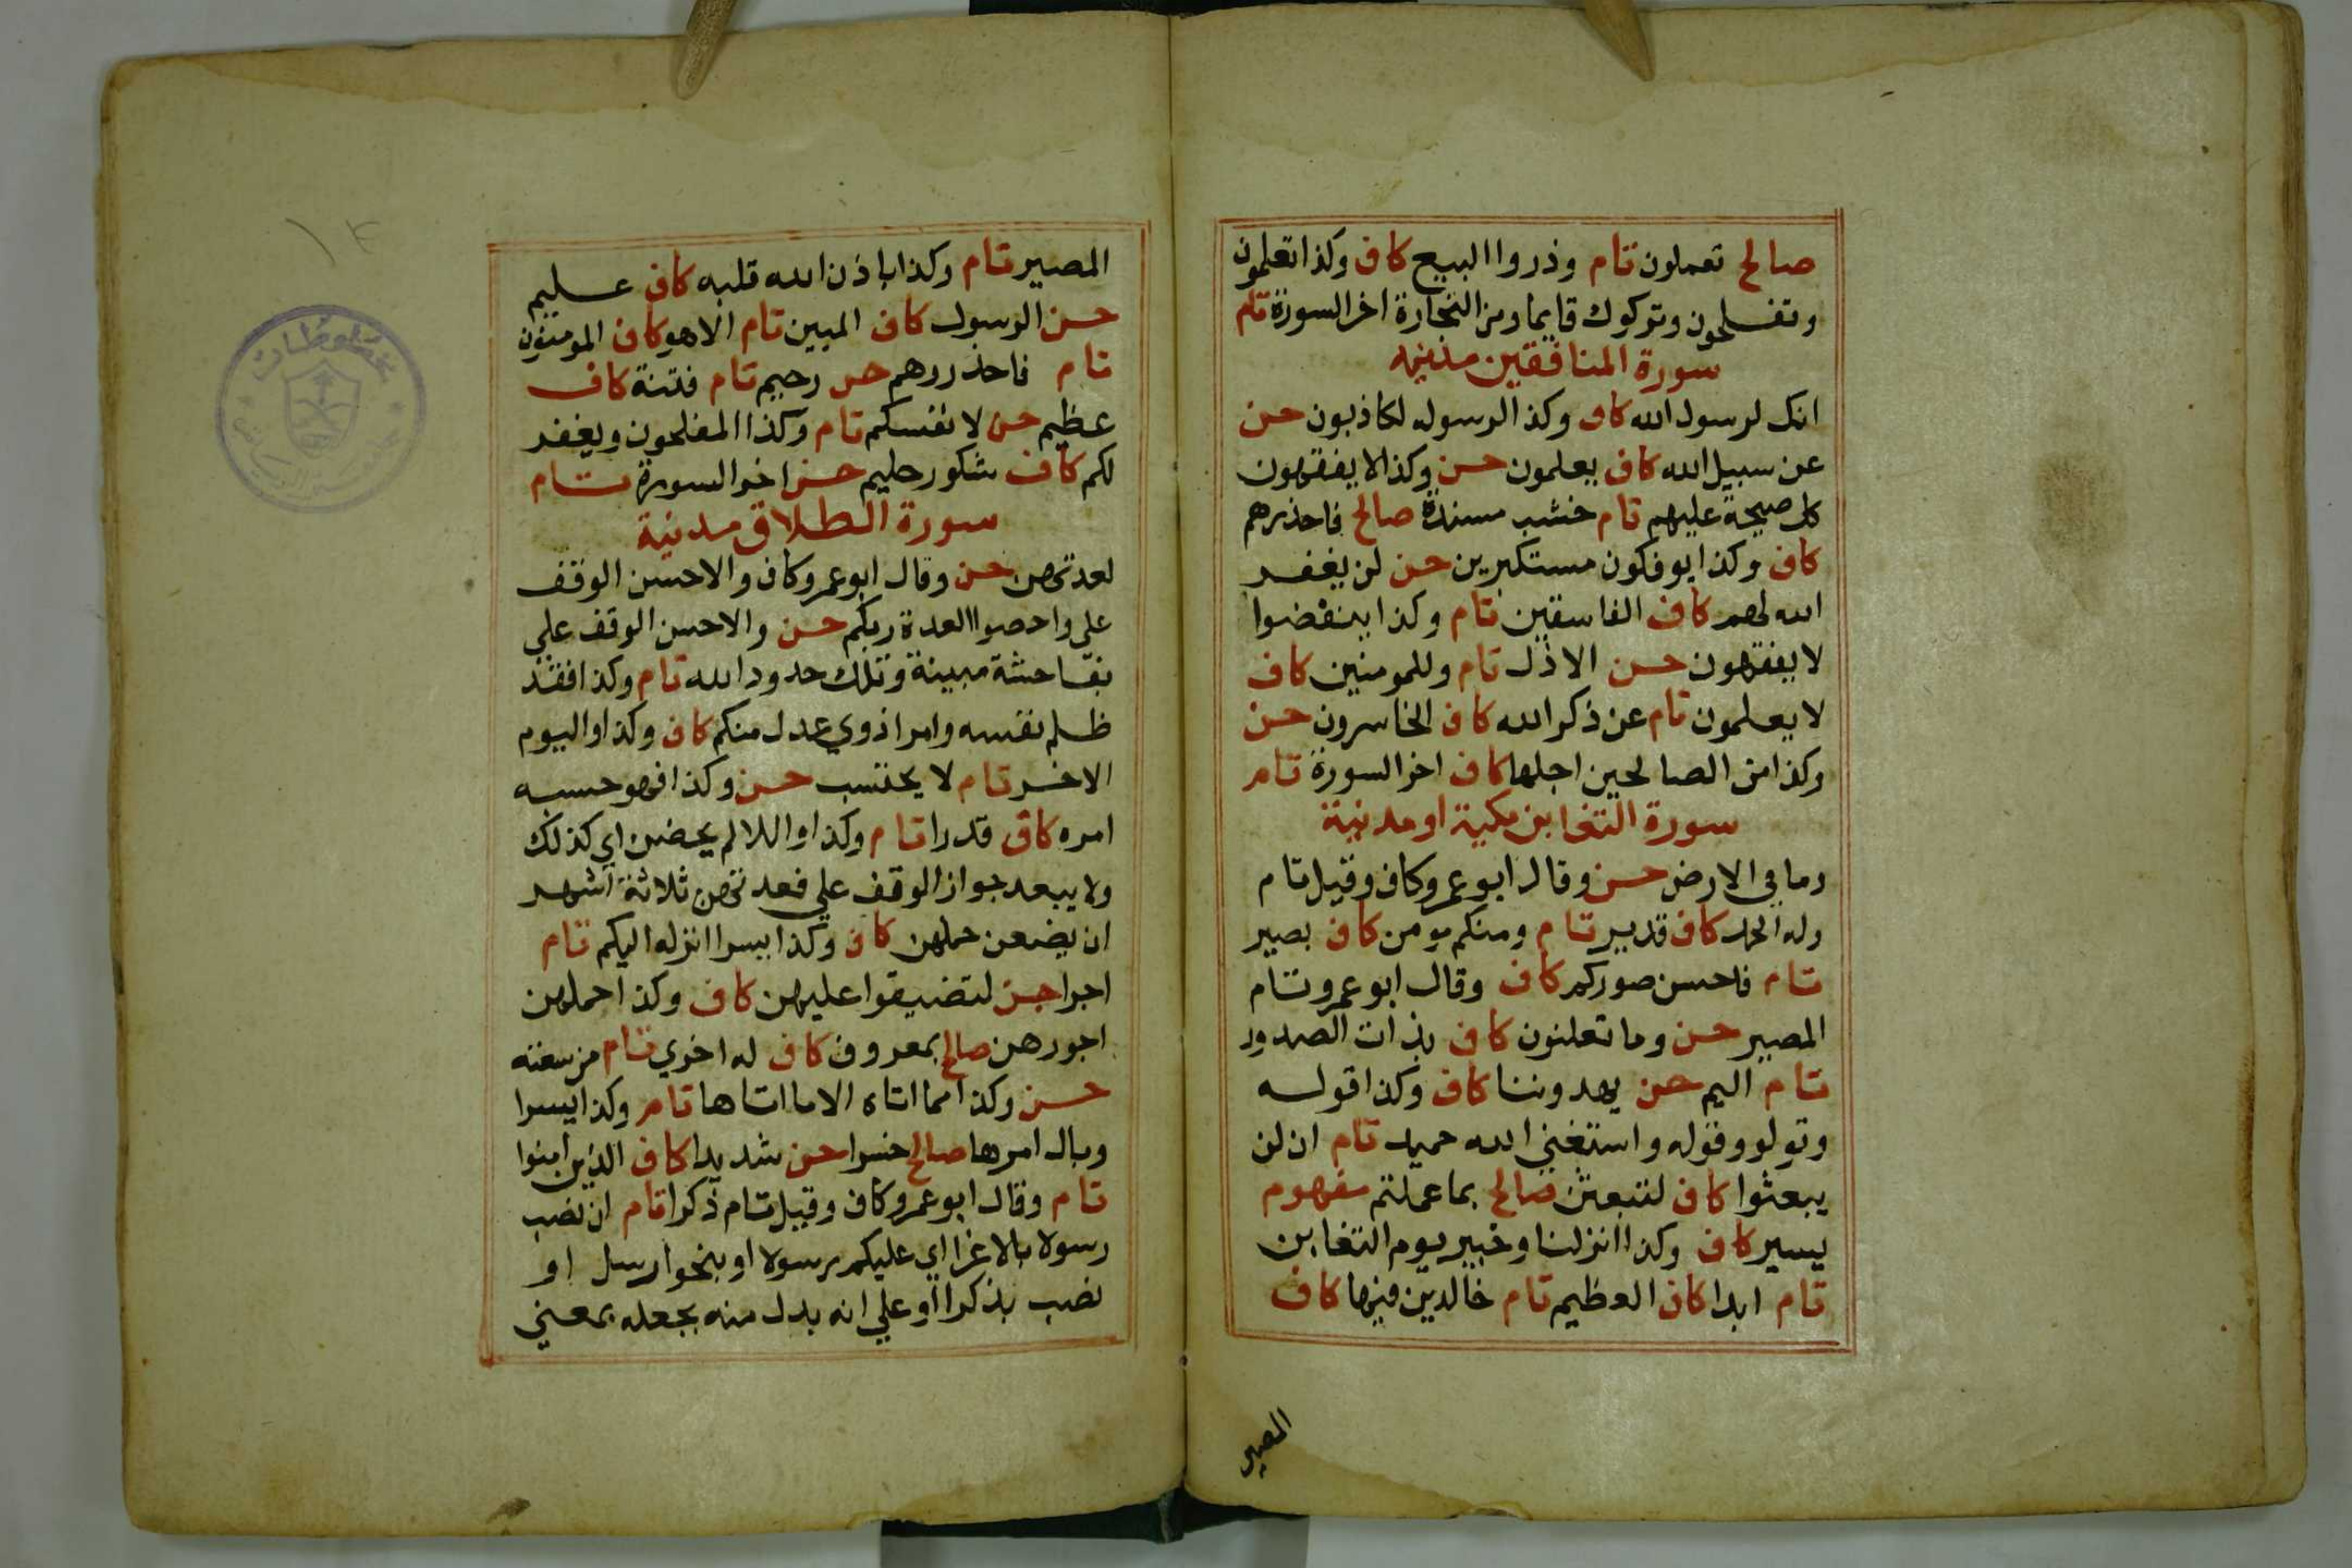 صالح تعملون تام وذروا البيع كاف وكذا تعلمون
وتفلحون وتركوك قايما ومن التجارة اخر السورة تام
سورة المنافقين مدنيه
انك لرسول الله كاف وكذا لرسوله لكاذبون حسن
عن سبيل الله كاف يعلمون حسن وكذا لا يفقهون
كل صيحة عليهم تام خشب مسندة صالح فاحذرهم
كاف وكذا يوفكون مستكبرين حسن لن يغفر
الله لهم كاف الفاسقين تام وكذا ينفضوا
لا يفقهون حسن الاذل تام وللمومنين كاف
لا يعلمون تام عن ذكر الله كاف الخاسرون حسن
وكذا من الصالحين اجلها كاف اخر السورة تام
سورة التغابن مكية او مدنية
وما في الارض حسن وقال ابو عمرو كاف وقيل تام
وله الحمد كاف قدير تام ومنكم مومن كاف بصير
تام فاحسن صوركم كاف وقال ابو عمرو تام
المصير حسن وما تعلنون كاف بذات الصدور
تام اليم حسن يهدوننا كاف وكذا قوله
وتولو وقوله واستغني الله حميد تام ان لن
يبعثوا كاف لتبعثن صالح بما عملتم مفهوم
يسير كاف وكذا انزلنا وخبير يوم التغابن
تام ابدا كاف العظيم تام خالدين فيها كاف
المصير
المصير تام وكذا باذن الله قلبه كاف عليم
حسن الرسول كاف المبين تام الا هو كاف المومنون
تام فاحذروهم حسن رحيم تام فتنة كاف
عظيم حسن لانفسكم تام وكذا المفلحون ويغفر
لكم كاف شكور حليم حسن اخر السورة تام
سورة الطلاق مدنية
لعدتهن حسن وقال ابو عمرو كاف والاحسن الوقف
علي واحصوا العدة ربكم حسن والاحسن الوقف علي
بفاحشة مبينة وتلك حدود الله تام وكذا فقد
ظلم نفسه وامرا ذوي عدل منكم كاف وكذا واليوم
الاخر تام لا يحتسب حسن وكذا فهو حسبه
امره كاف قدرا تام وكذا واللا لم يحضن اي كذلك
ولا يبعد جواز الوقف علي فعدتهن ثلاثة اشهر
ان يضعن حملهن كاف وكذا يسرا انزله اليكم تام
اجرا حسن لتضيقوا عليهن كاف وكذا حملهن
اجورهن صالح بمعروف كاف له اخري تام من سعته
حسن وكذا مما اتاه الا ما اتاها تام وكذا يسرا
وبال امرها صالح خسرا حسن شديدا كاف الذين امنوا
تام وقال ابو عمرو كاف وقيل تام ذكرا تام ان نصب
رسولا بالاغرا اي عليكم رسولا او بنحو ارسل او
نصب بذكرا او علي انه بدل منه بجعله بمعني